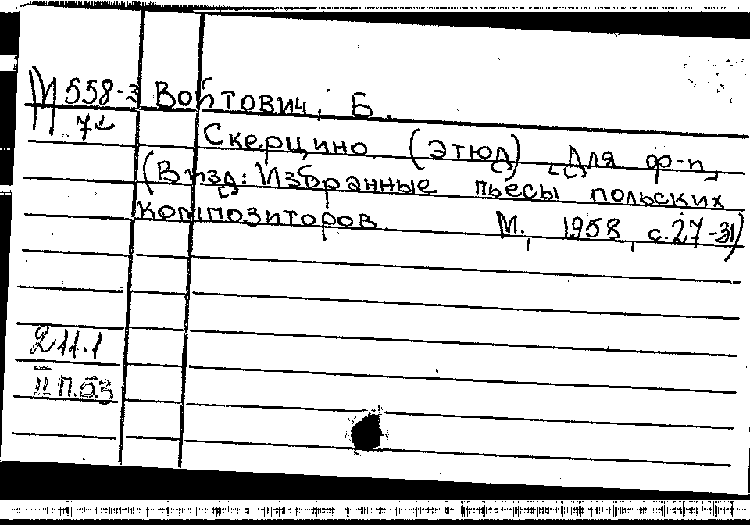 М 558-3 Войтович, Б.
7
Скерцино (этюд) Для ф-п.
(В изд: Избранные пьесы польских
композиторов. М., 1958, с. 27-31)
211.1
II П.53